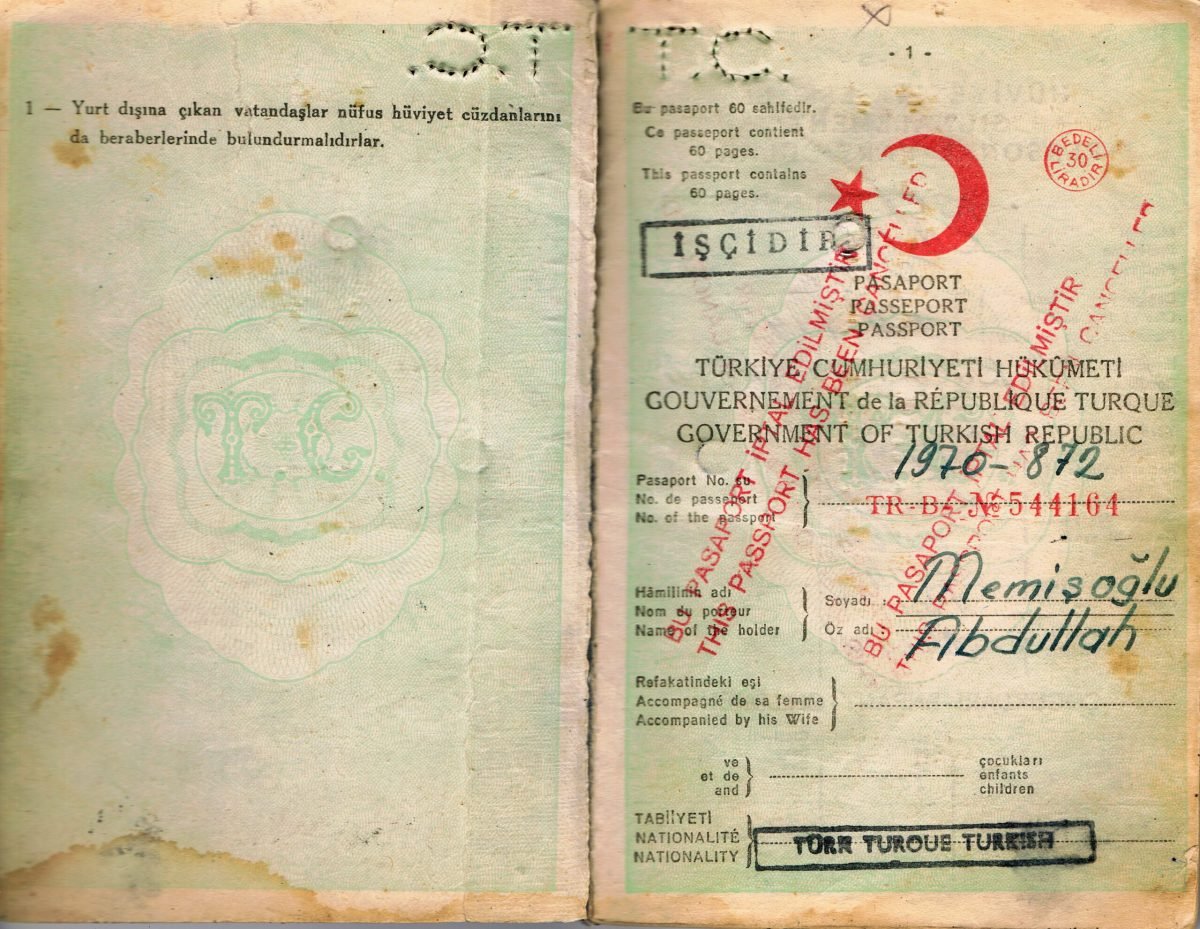 T.C.
1 — Yurt dışına çıkan vatandaşlar nüfus hüviyet cüzdanlarını
da beraberlerinde bulundurmalıdırlar.
T.C.
T.C.
- 1 -
Bu pasaport 60 sahifedir.
Ce passeport contient
60 pages.
This passport contains
60 pages.
BEDELİ
30
LİRADIR
İŞÇİDİR
PASAPORT
PASSEPORT
PASSPORT
TÜRKİYE CUMHURİYETİ HÜKÛMETİ
GOUVERNEMENT de la RÉPUBLIQUE TURQUE
GOVERNMENT OF TURKISH REPUBLIC
1970-872
Pasaport No. su
No. de passeport
No. of the passport
TR-B No 544164
BU PASAPORT İPTAL EDİLMİŞTİR
THIS PASSPORT HAS BEEN CANCELLED
BU PASAPORT İPTAL EDİLMİŞTİR
THIS PASSPORT HAS BEEN CANCELLED
Hâmilinin adı
Nom du porteur
Name of the holder
Soyadı : Memişoğlu
Öz adı : Abdullah
Refakatindeki eşi
Accompagné de sa femme
Accompanied by his Wife
ve
et de
and
çocukları
enfants
children
TABİİYETİ
NATIONALITÉ
NATIONALITY
TÜRK TURQUE TURKISH